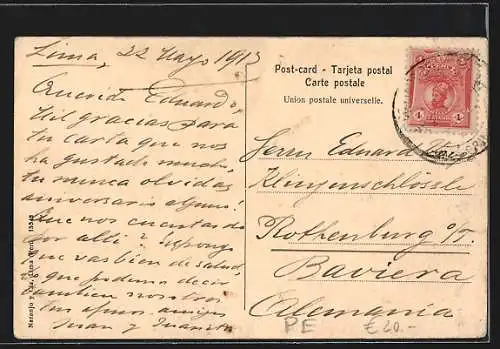 Lima, 22 Mayo 1913
Querido Eduardo,
Mil gracias para
tu carta que nos
ha gustado mucho,
tu nunca olvidas
aniversario alguno!
Que nos cuentas de
por allí?
que vas bien de salud,
y que podemos decir
tambien nosotros
tus amigos
Juan y Juanita
Post-card - Tarjeta postal
Carte postale
Union postale universelle.
4 4
Herrn Eduard
Klingenschlössle
Rothenburg o/T.
Baviera
Alemania
PE €20.-
Naranjo y Cia. Lima (Perú) 15549